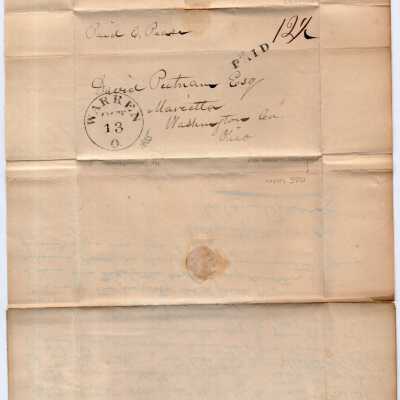 Paid C. Pease
PAID
12½
David Putnam Esq
Marietta
Washington Co.
Ohio
WARREN
13
O.